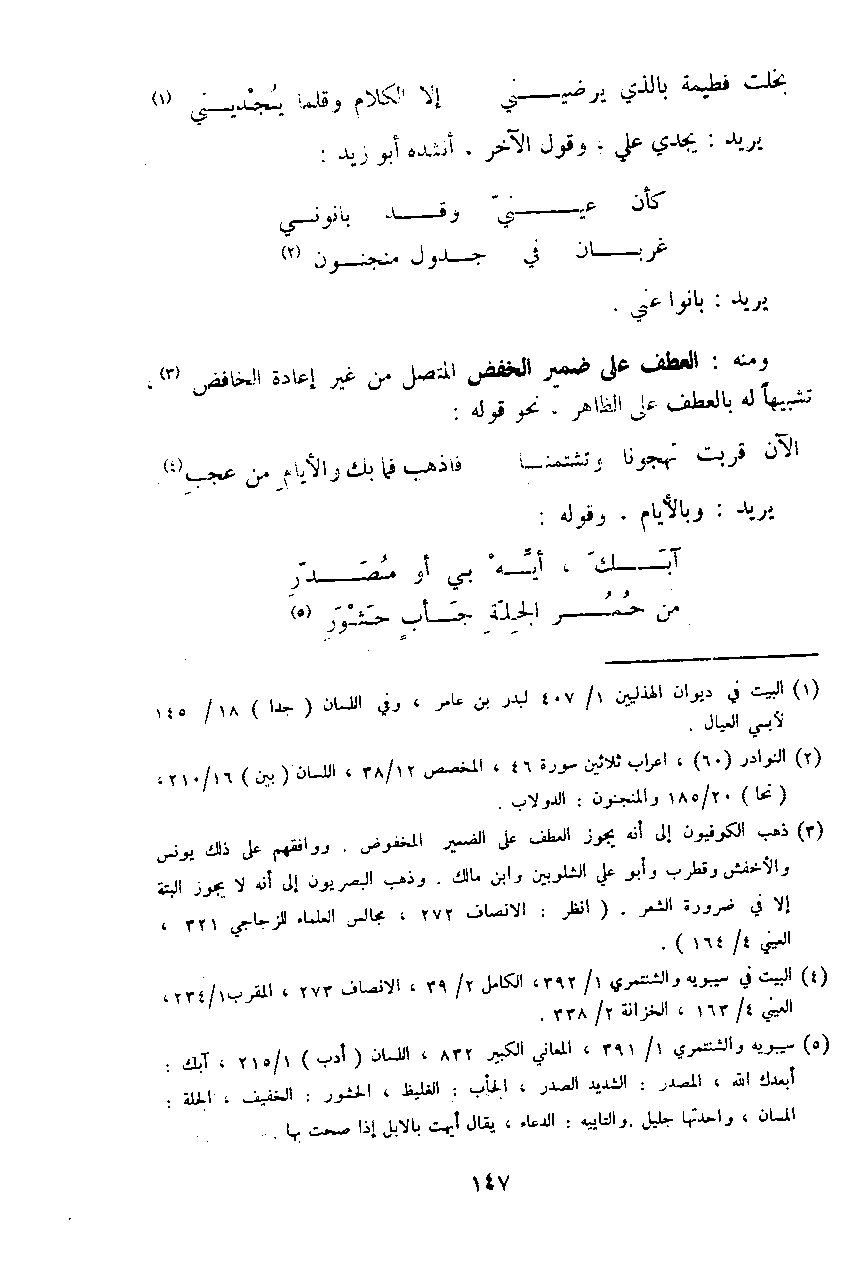 بخلت فطيمة بالذي يرضيـــني إلا الكلام وقلما يُجْديـــني (١)
يريد : يجدي علي ، وقول الآخر . أنشده أبو زيد :
كأن عيـــنيّ وقـــد بانونـي
غربـــان في جـــدول منجنـون (٢)
يريد : بانوا عني .
ومنه : العطف على ضمير الخفض المتصل من غير إعادة الخافض (٣) ،
تشبيهاً له بالعطف على الظاهر . نحو قوله :
الآن قربت تهجونا وتشتمنـا فاذهب فما بك والأيامِ من عجبِ (٤)
يريد : وبالأيام . وقوله :
آبَـــكَ ، أيِّـــهْ بـي أو مُصَـــدّرِ
من حُمُـــر الجِلّةِ جَـأبٍ حَشْوَرِ (٥)
(١) البيت في ديوان الهذليين ١/ ٤٠٧ لبدر بن عامر ، وفي اللسان ( جدا ) ١٨/ ١٤٥
لأبـي العيال .
(٢) النوادر (٦٠) ، اعراب ثلاثين سورة ٤٦ ، المخصص ٣٨/١٢ ، اللسان ( بين ) ٢١٠/١٦ ،
( نحا ) ١٨٥/٢٠ والمنجنون : الدولاب .
(٣) ذهب الكوفيون إلى أنه يجوز العطف على الضمير المخفوض . ووافقهم على ذلك يونس
والأخفش وقطرب وأبو علي الشلوبين وابن مالك . وذهب البصريون إلى أنه لا يجوز البتة
إلا في ضرورة الشعر . ( انظر : الانصاف ٢٧٢ ، مجالس العلماء للزجاجي ٣٢١ ،
العيني ٤/ ١٦٤ ) .
(٤) البيت في سيبويه والشنتمري ١/ ٣٩٢ ، الكامل ٢/ ٣٩ ، الانصاف ٢٧٣ ، المقرب ٢٣٤/١ ،
العيني ٤/ ١٦٣ ، الخزانة ٢/ ٣٣٨ .
(٥) سيبويه والشنتمري ١/ ٣٩١ ، المعاني الكبير ٨٣٢ ، اللسان ( أدب ) ٢١٥/١ ، آبك :
أبعدك الله ، المصدر : الشديد الصدر ، الجأب : الغليظ ، الحشور : الخفيف ، الجلة :
المسان ، واحدتها جليل .والتاييه : الدعاء ، يقال أيهت بالابل إذا صحت بها .
١٤٧